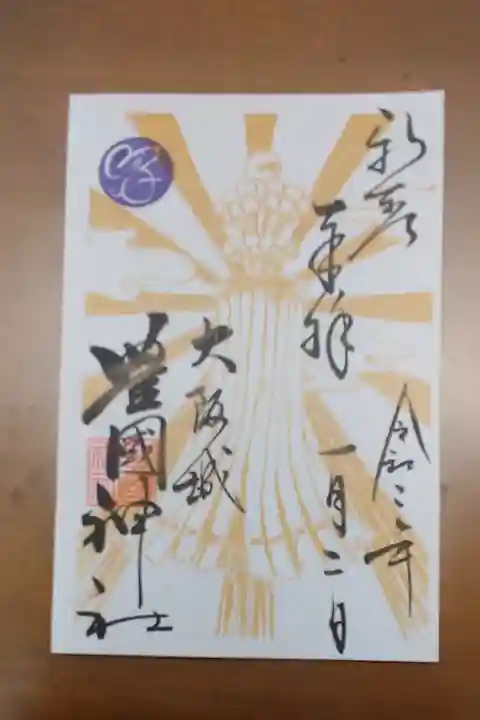 新春
奉拝
令和三年
一月二日
大阪城
豊國神社